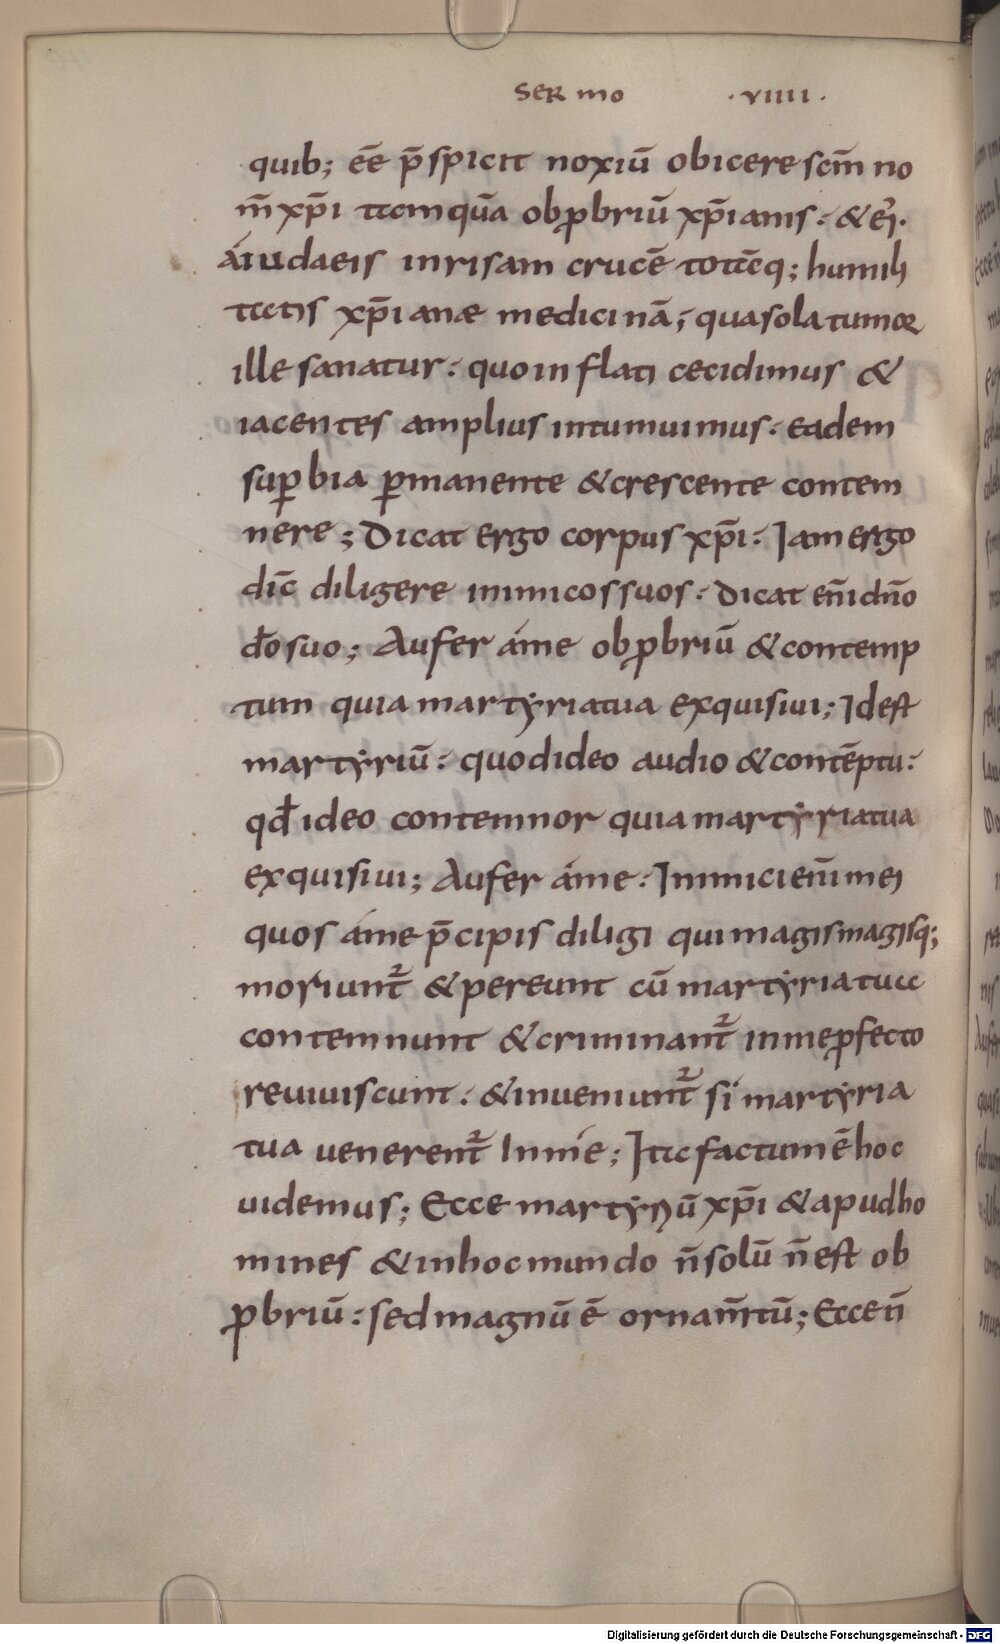 SERmo ·VIIII·
quib; eē p̄spicit noxiū obicere scm̄ no
m̄ xp̄i tamquā obꝓbriū xp̄ianis· & er̄·
á iudaeis inrisam crucē totāq; humili
tatis xp̄ianæ medicinā; qua sola tumor
ille sanatur· quo inflati cecidimus &
iacentes amplius intumuimus· eadem
suꝑbia ꝑmanente & crescente contem
nere; Dicat ergo corpus xp̄i· Iam ergo
dic̄ diligere inimicos suos· Dicat en̄i dn̄o
do̅ suo; Aufer á me obꝓbriū & contemp
tum quia martyria tua exquisiui; Idest
martyriū· quod ideo audio & contēptu·
qd̄ ideo contemnor quia martyria tua
exquisiui; Aufer á me· Inimici en̄i mei
quos á me p̄cipis diligi qui magis magisq;
moriunt̄ & pereunt cū martyria tua
contemnunt & criminant̄ in me ꝓfecto
reuiuiscunt· & inueniunt̄ si martyria
tua uenerent̄ In mé; Ita factum ē hoc
uidemus; Ecce martyriū xp̄i & apud ho
mines & in hoc mundo n̄ solū n̄ est ob
ꝓbriū· sed magnū ē ornam̄tū; Ecce n̄
Digitalisierung gefördert durch die Deutsche Forschungsgemeinschaft - DFG